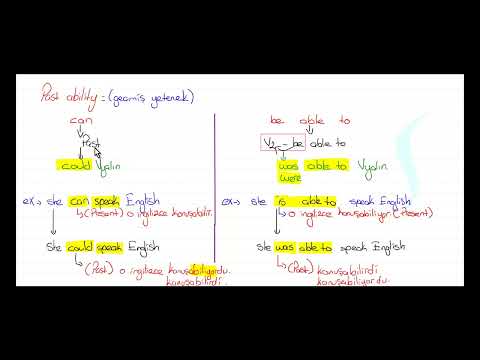 Past ability = (geçmiş yetenek)
can
Past
could Vyalın
ex → she can speak English
↳ (Present) o ingilizce konuşabilir.
She could speak English
↳ (Past) o ingilizce konuşabiliyordu.
konuşabilirdi.
be able to
be able to
was able to Vyalın
were
ex → she is able to speak English
↳ o ingilizce konuşabiliyor (Present)
She was able to speak English
↳ (Past) konuşabilirdi
konuşabiliyordu.